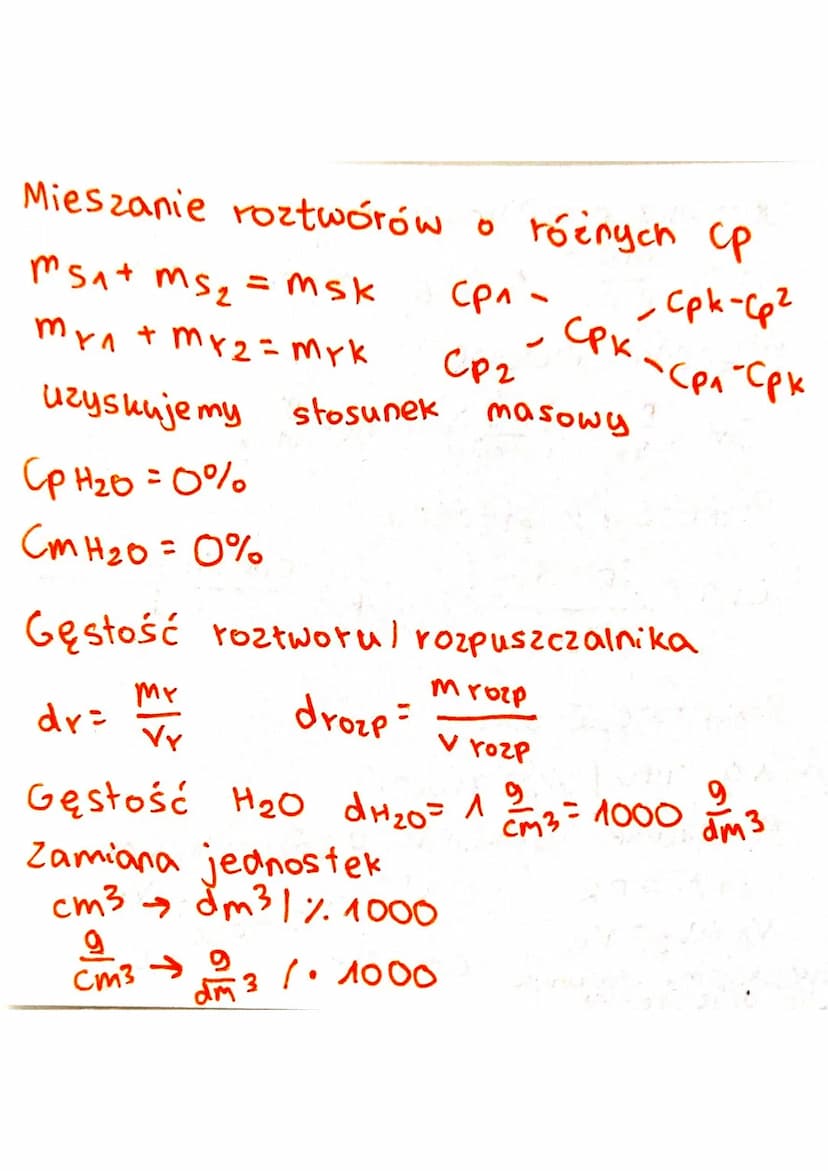 Mieszanie roztwórów o różnych Cp
ms1 + ms2 = msk
mr1 + mr2 = mrk
Cp1 - Cpk - Cpk-Cp2
Cp2 - Cpk - Cp1-Cpk
uzyskujemy stosunek masowy
CpH2O = 0%
CmH2O = 0%
Gęstość roztworu / rozpuszczalnika
dr = mr/Vr drozp = m rozp/v rozp
Gęstość H2O dH2O = 1 g/cm3 = 1000 g/dm3
Zamiana jednostek
cm3 → dm3 | ٪ 1000
g/cm3 → g/dm3 / · 1000